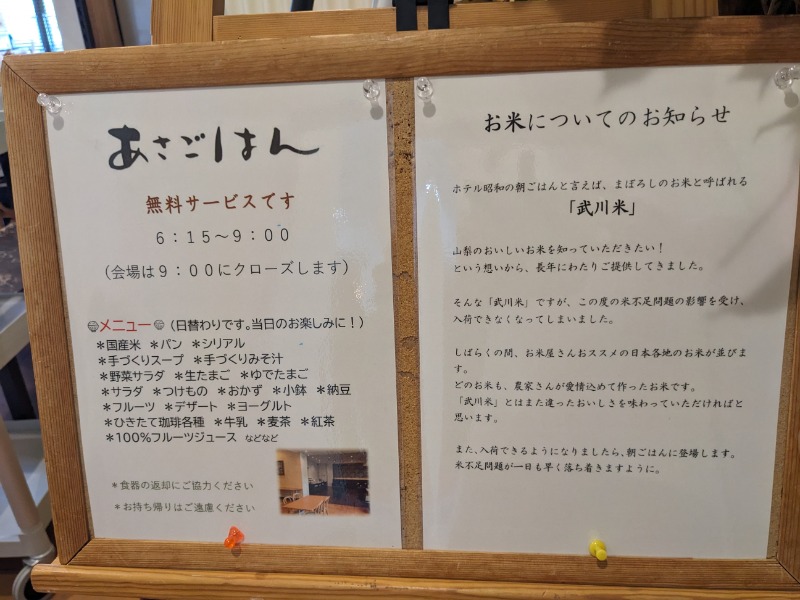 あさごはん
無料サービスです
6：15～9：00
（会場は9：00にクローズします）
メニュー（日替わりです。当日のお楽しみに！）
＊国産米 ＊パン ＊シリアル
＊手づくりスープ ＊手づくりみそ汁
＊野菜サラダ ＊生たまご ＊ゆでたまご
＊サラダ ＊つけもの ＊おかず ＊小鉢 ＊納豆
＊フルーツ ＊デザート ＊ヨーグルト
＊ひきたて珈琲各種 ＊牛乳 ＊麦茶 ＊紅茶
＊100%フルーツジュース などなど
＊食器の返却にご協力ください
＊お持ち帰りはご遠慮ください
お米についてのお知らせ
ホテル昭和の朝ごはんと言えば、まぼろしのお米と呼ばれる
「武川米」
山梨のおいしいお米を知っていただきたい！
という想いから、長年にわたりご提供してきました。
そんな「武川米」ですが、この度の米不足問題の影響を受け、
入荷できなくなってしまいました。
しばらくの間、お米屋さんおススメの日本各地のお米が並びま
す。
どのお米も、農家さんが愛情込めて作ったお米です。
「武川米」とはまた違ったおいしさを味わっていただければと
思います。
また、入荷できるようになりましたら、朝ごはんに登場します。
米不足問題が一日も早く落ち着きますように。